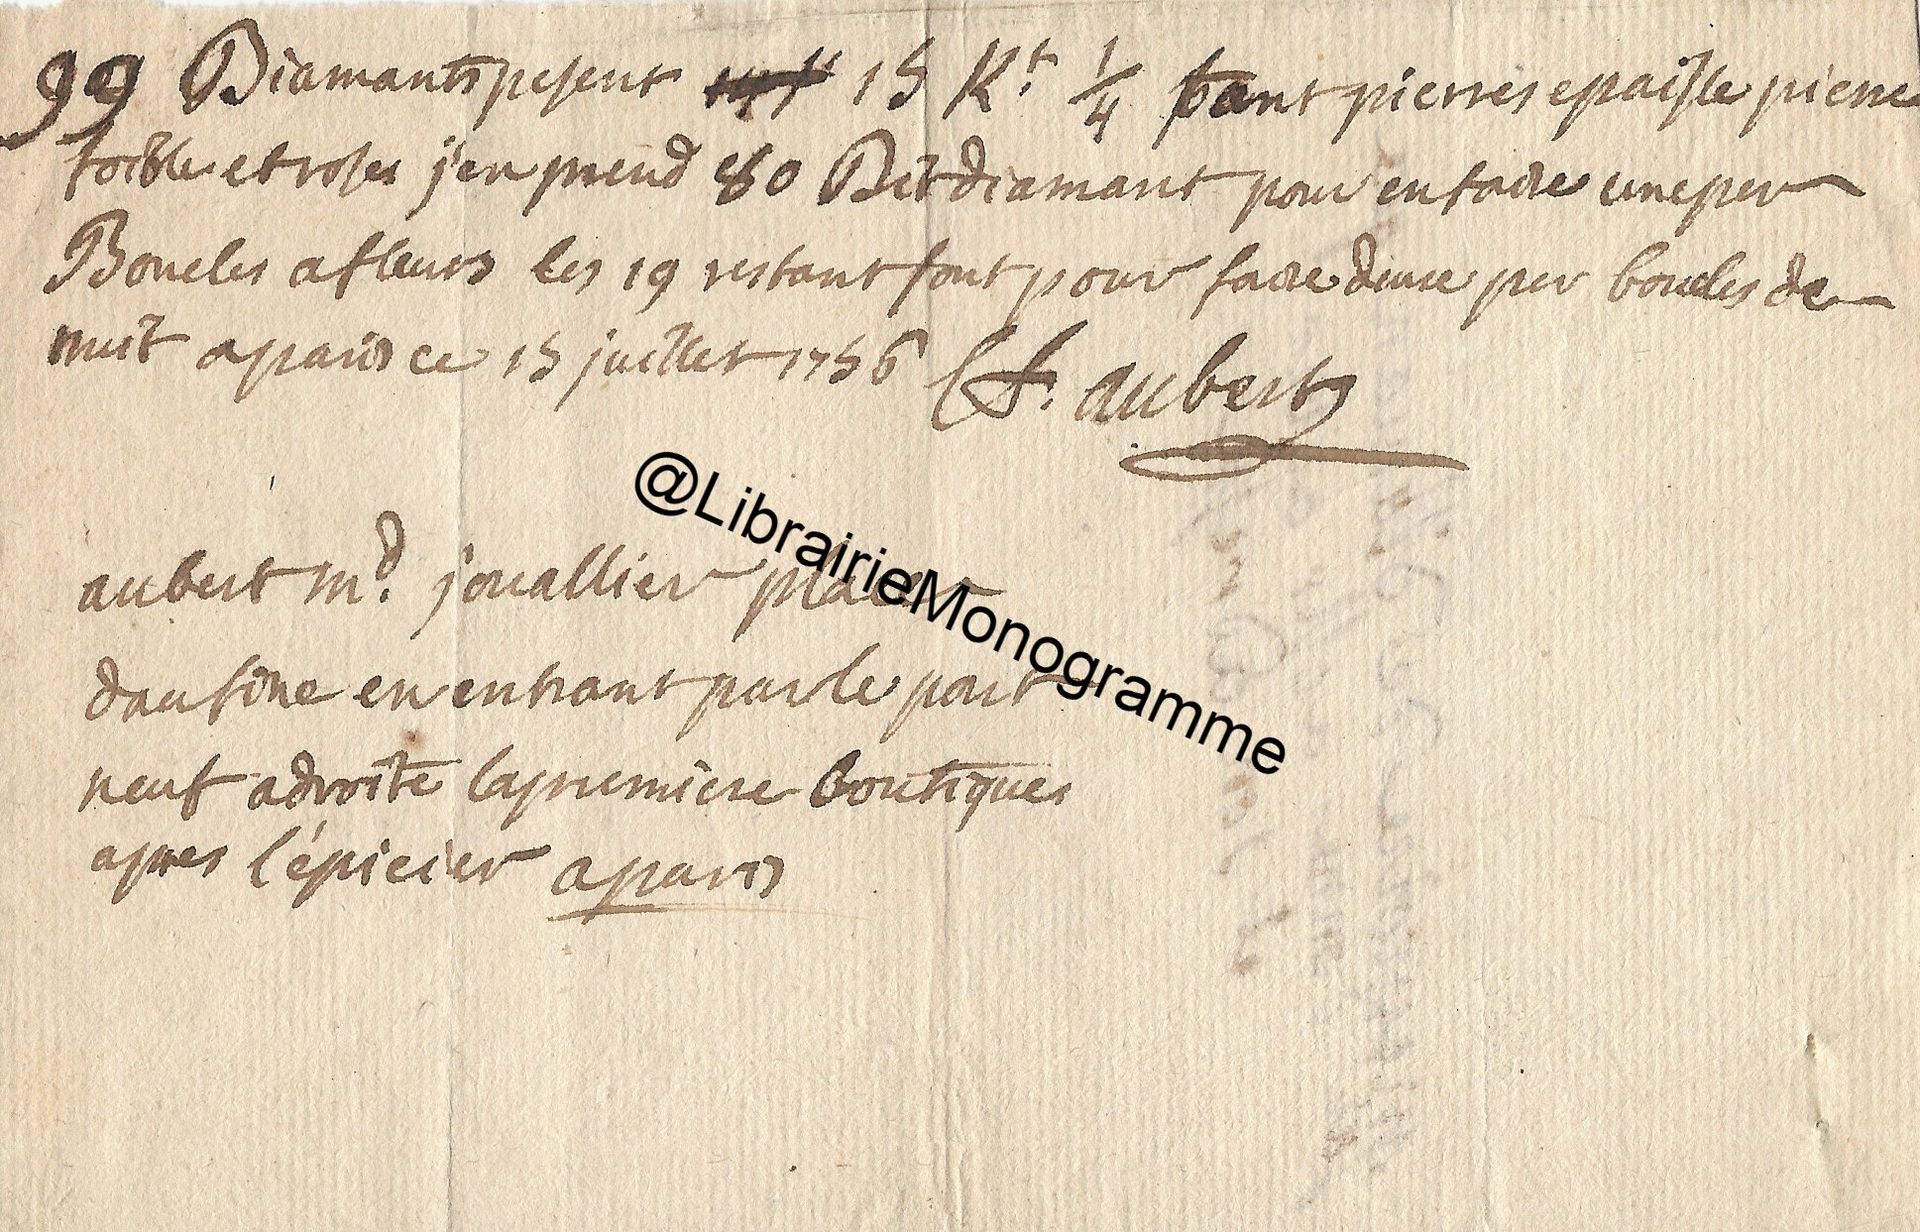 99 Diamants pesent 15 Kt. 1/4 tant pierres epaisse pierre
foible et roses j'en prend 80 Bt diamant pour en faire une per
Boucles a fleurs les 19 restant sont pour faire deuse per boucles de
nuit a paris ce 15 juillet 1756 aubert
aubert md. jouallier place
daufine en entrant par le pont
neuf a droite la premiere boutiques
apres l'épicier a paris
@LibrairieMonogramme